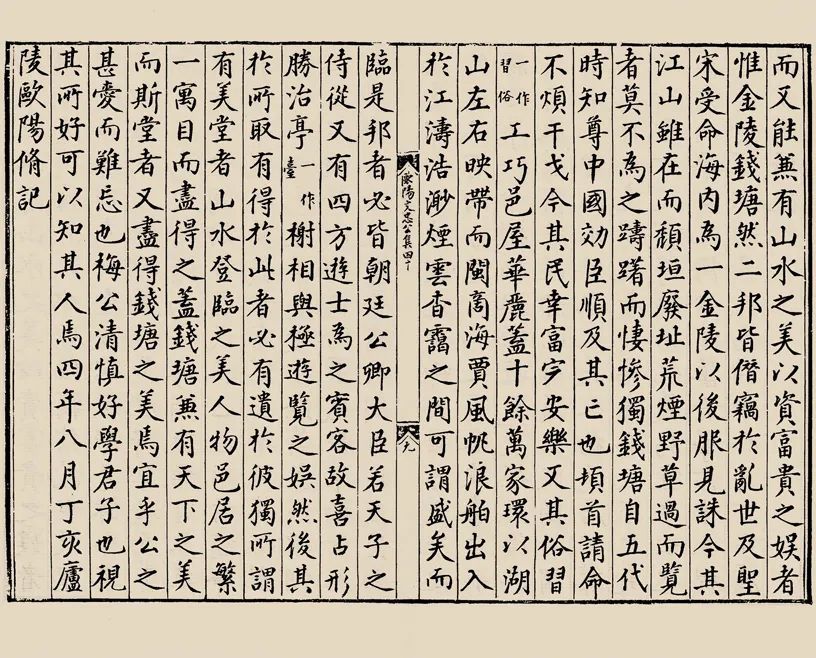 而又能兼有山水之美以資富貴之娛者
惟金陵錢塘然二邦皆僭竊於亂世及聖
宋受命海內為一金陵以後服見誅今其
江山雖在而頹垣廢址荒煙野草過而覽
者莫不為之躊躇而悽慘獨錢塘自五代
時知尊中國効臣順及其亡也頓首請命
不煩干戈今其民幸富完安樂又其俗習
一作習俗工巧邑屋華麗蓋十餘萬家環以湖
山左右映帶而閩商海賈風帆浪舶出入
於江濤浩渺煙雲杳靄之間可謂盛矣而
歐陽文忠公集四十 九
臨是邦者必皆朝廷公卿大臣若天子之
侍從又有四方遊士為之賓客故喜占形
勝治亭一作臺榭相與極遊覽之娛然後其
於所取有得於此者必有遺於彼獨所謂
有美堂者山水登臨之美人物邑居之繁
一寓目而盡得之蓋錢塘兼有天下之美
而斯堂者又盡得錢塘之美焉宜乎公之
甚愛而難忘也梅公清慎好學君子也視
其所好可以知其人焉四年八月丁亥廬
陵歐陽脩記